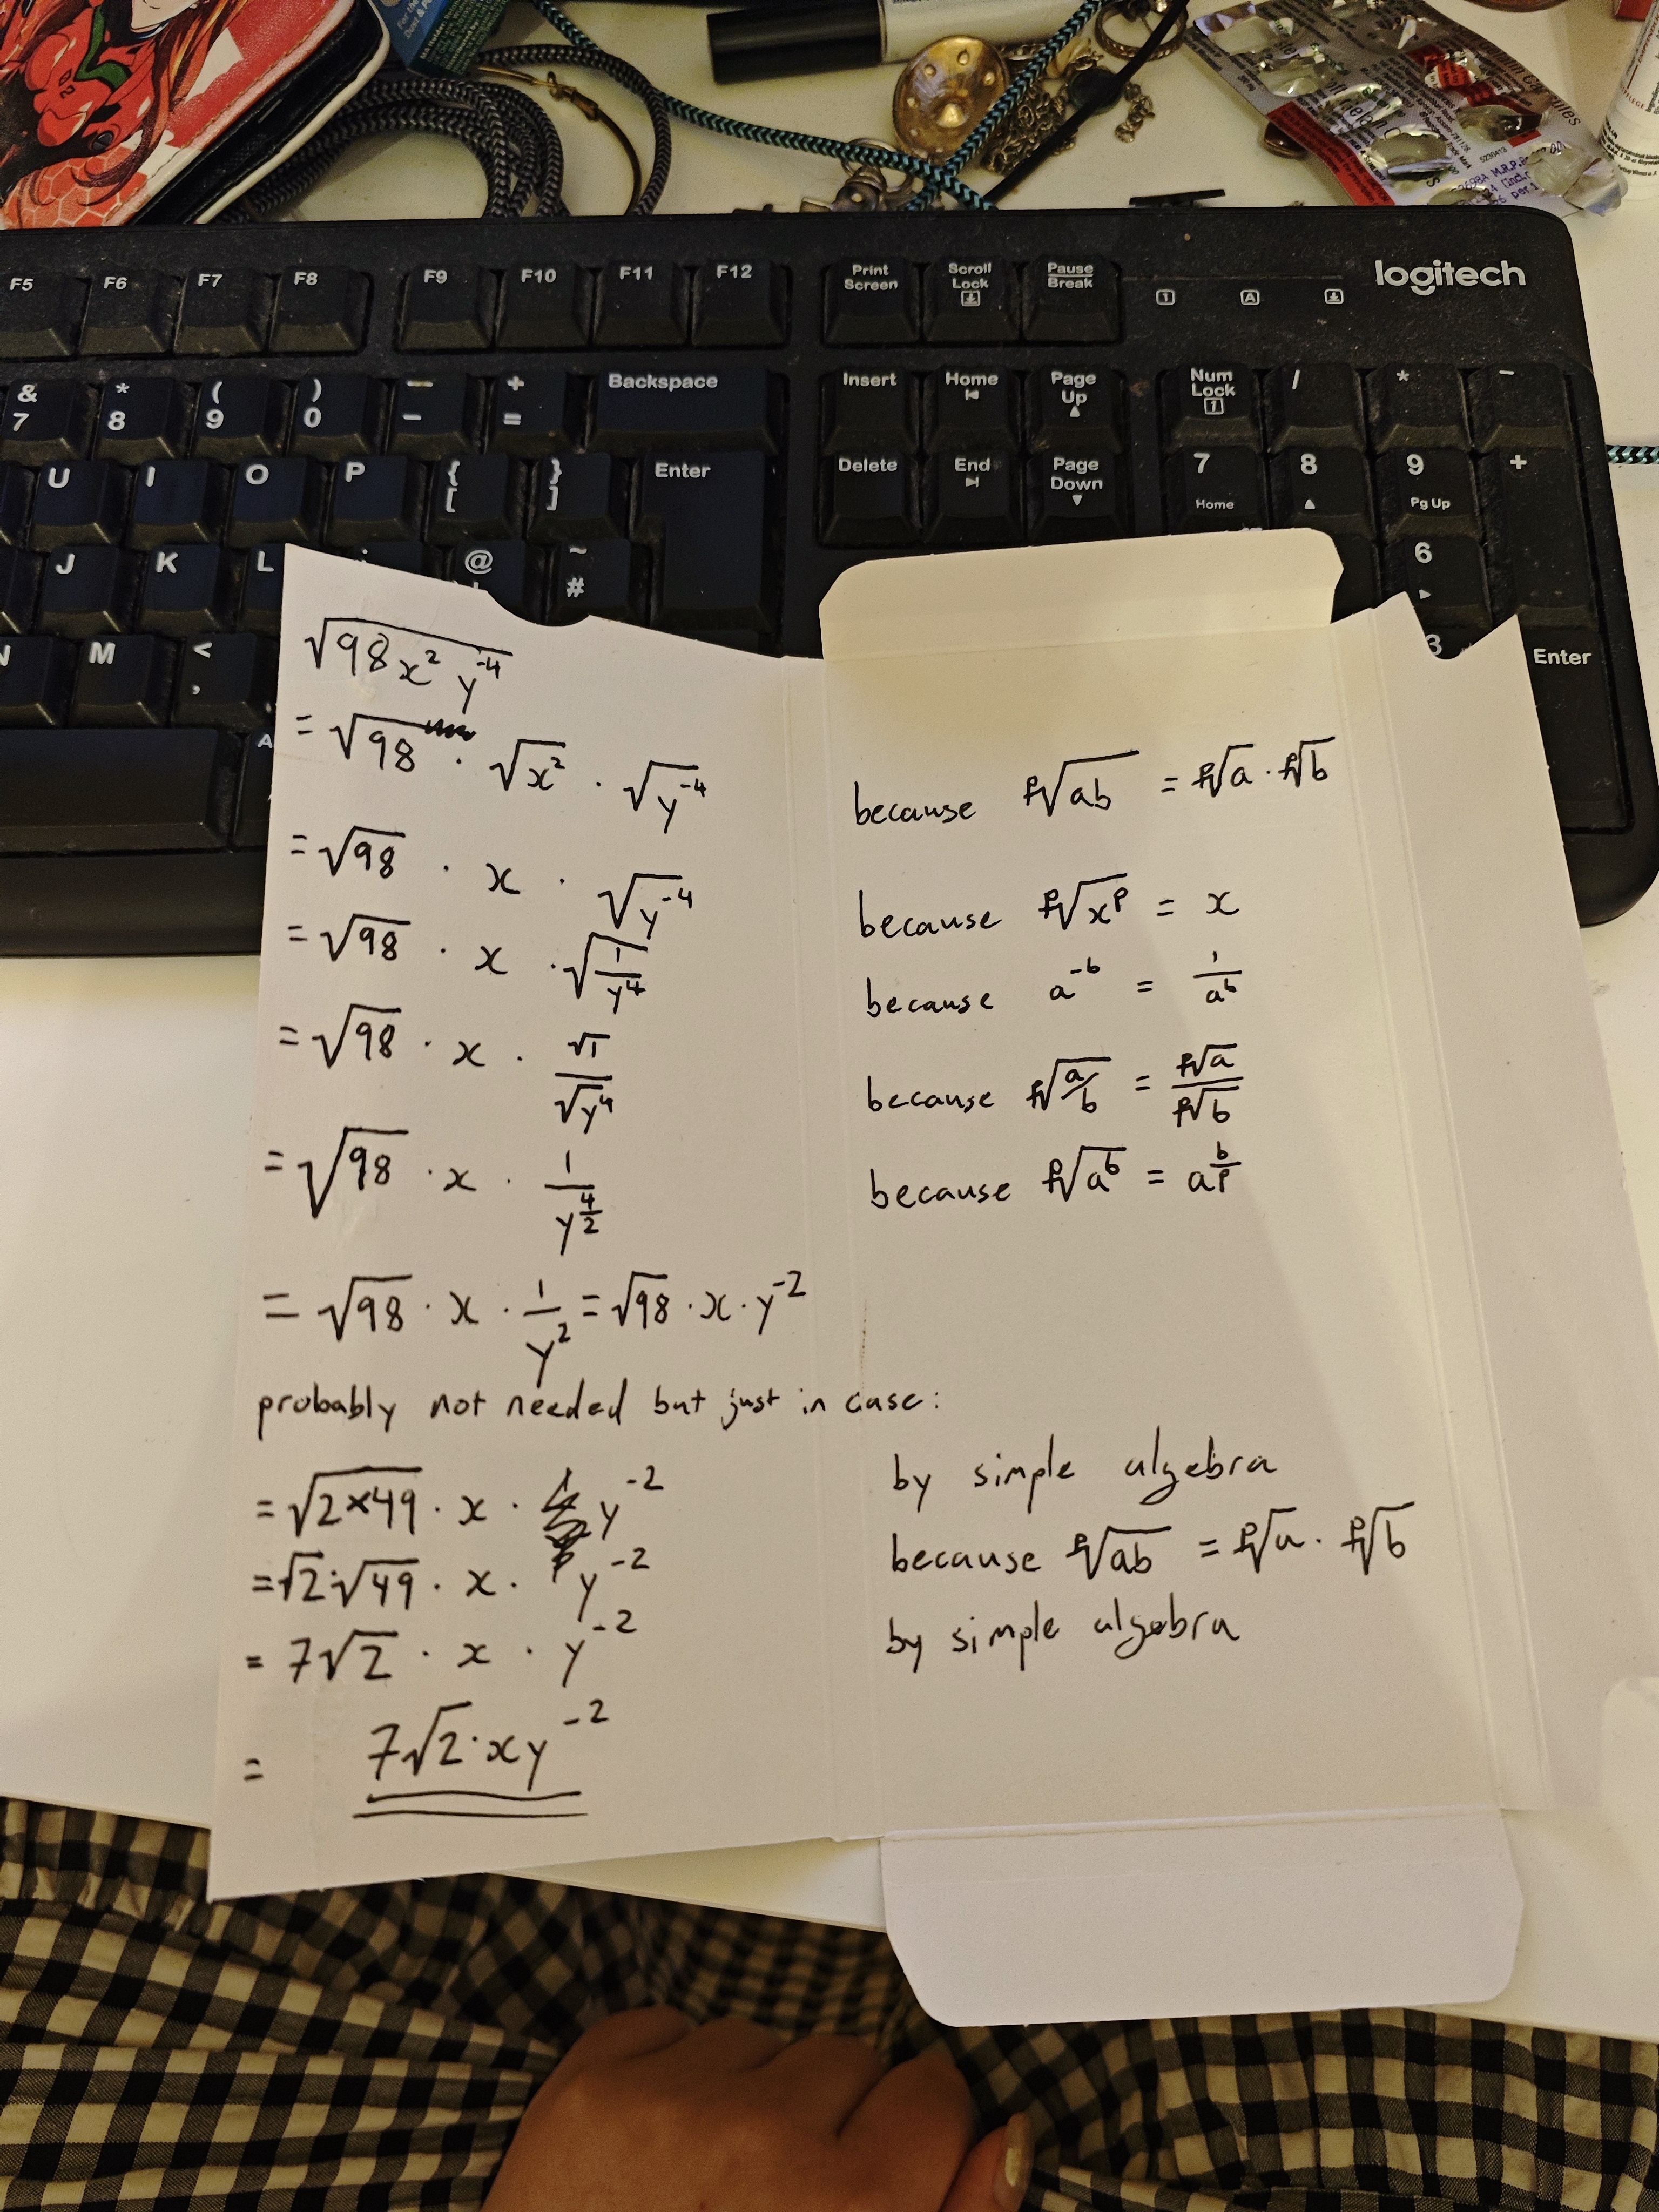 For the
Dust &
logitech
F5 F6 F7 F8 F9 F10 F11 F12 Print Screen Scroll Lock Pause Break
1 A
& 7 * 8 ( 9 ) 0 — - + = Backspace Insert Home Page Up Num Lock 1 / * -
U I O P { [ } ] Enter Delete End Page Down 7 Home 8 9 Pg Up +
J K L @ ~ # 6
N M < , 3 Enter
A
√(98x² y⁻⁴)
= √98 · √x² · √y⁻⁴ because ᵖ√ab = ᵖ√a · ᵖ√b
= √98 · x · √y⁻⁴ because ᵖ√xᵖ = x
= √98 · x · √(1/y⁴) because a⁻ᵇ = 1/aᵇ
= √98 · x · √1/√y⁴ because ᵖ√(a/b) = ᵖ√a/ᵖ√b
= √98 · x · 1/y^(4/2) because ᵖ√aᵇ = a^(b/p)
= √98 · x · 1/y² = √98 · x · y⁻²
probably not needed but just in case:
= √(2×49) · x · y⁻² by simple algebra
= √2 · √49 · x · y⁻² because ᵖ√ab = ᵖ√a · ᵖ√b
= 7√2 · x · y⁻² by simple algebra
= 7√2 · xy⁻²